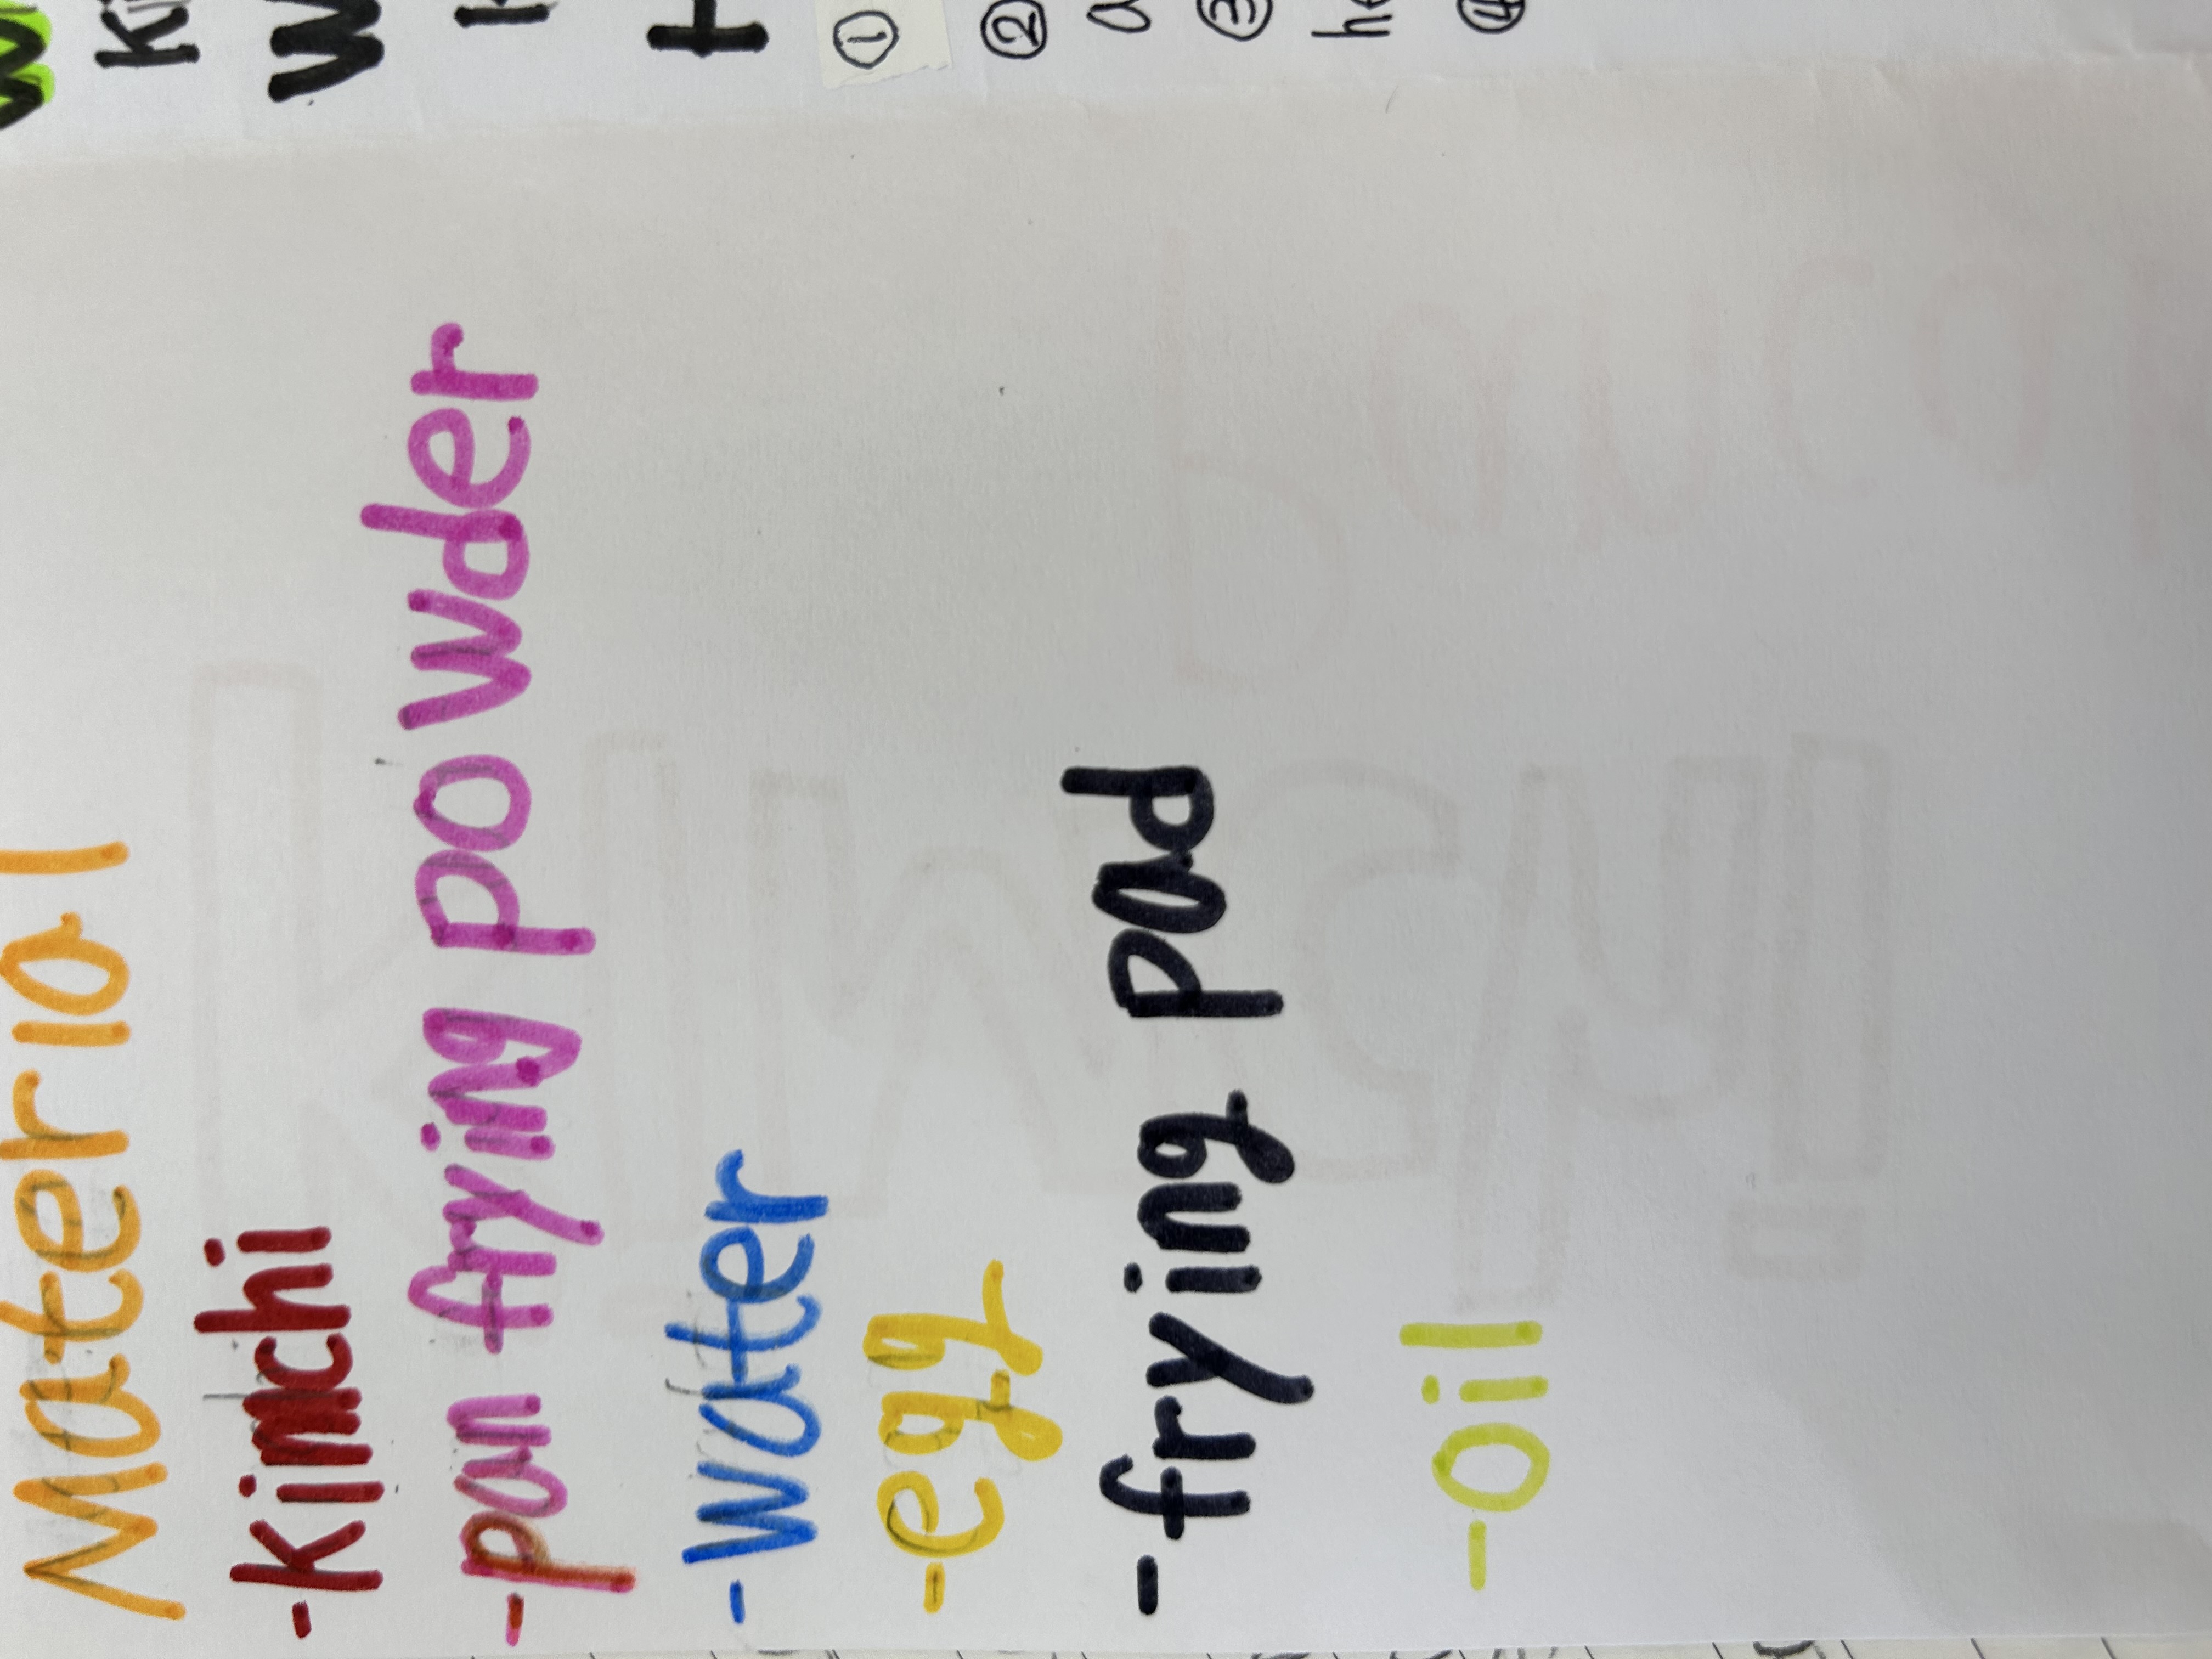 Material
-kimchi
-pan frying powder
-water
-egg
-frying pad
-oil
①
②
③
④